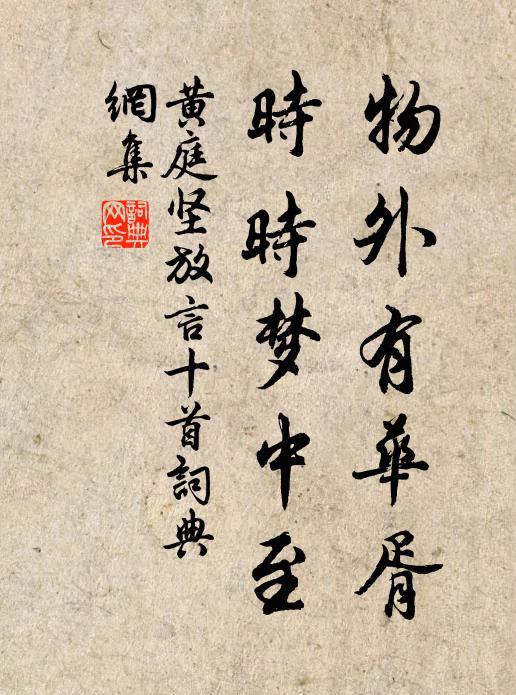 物外有華胥
時時梦中至
黄庭坚放言十首詞典
網集
詞典网印